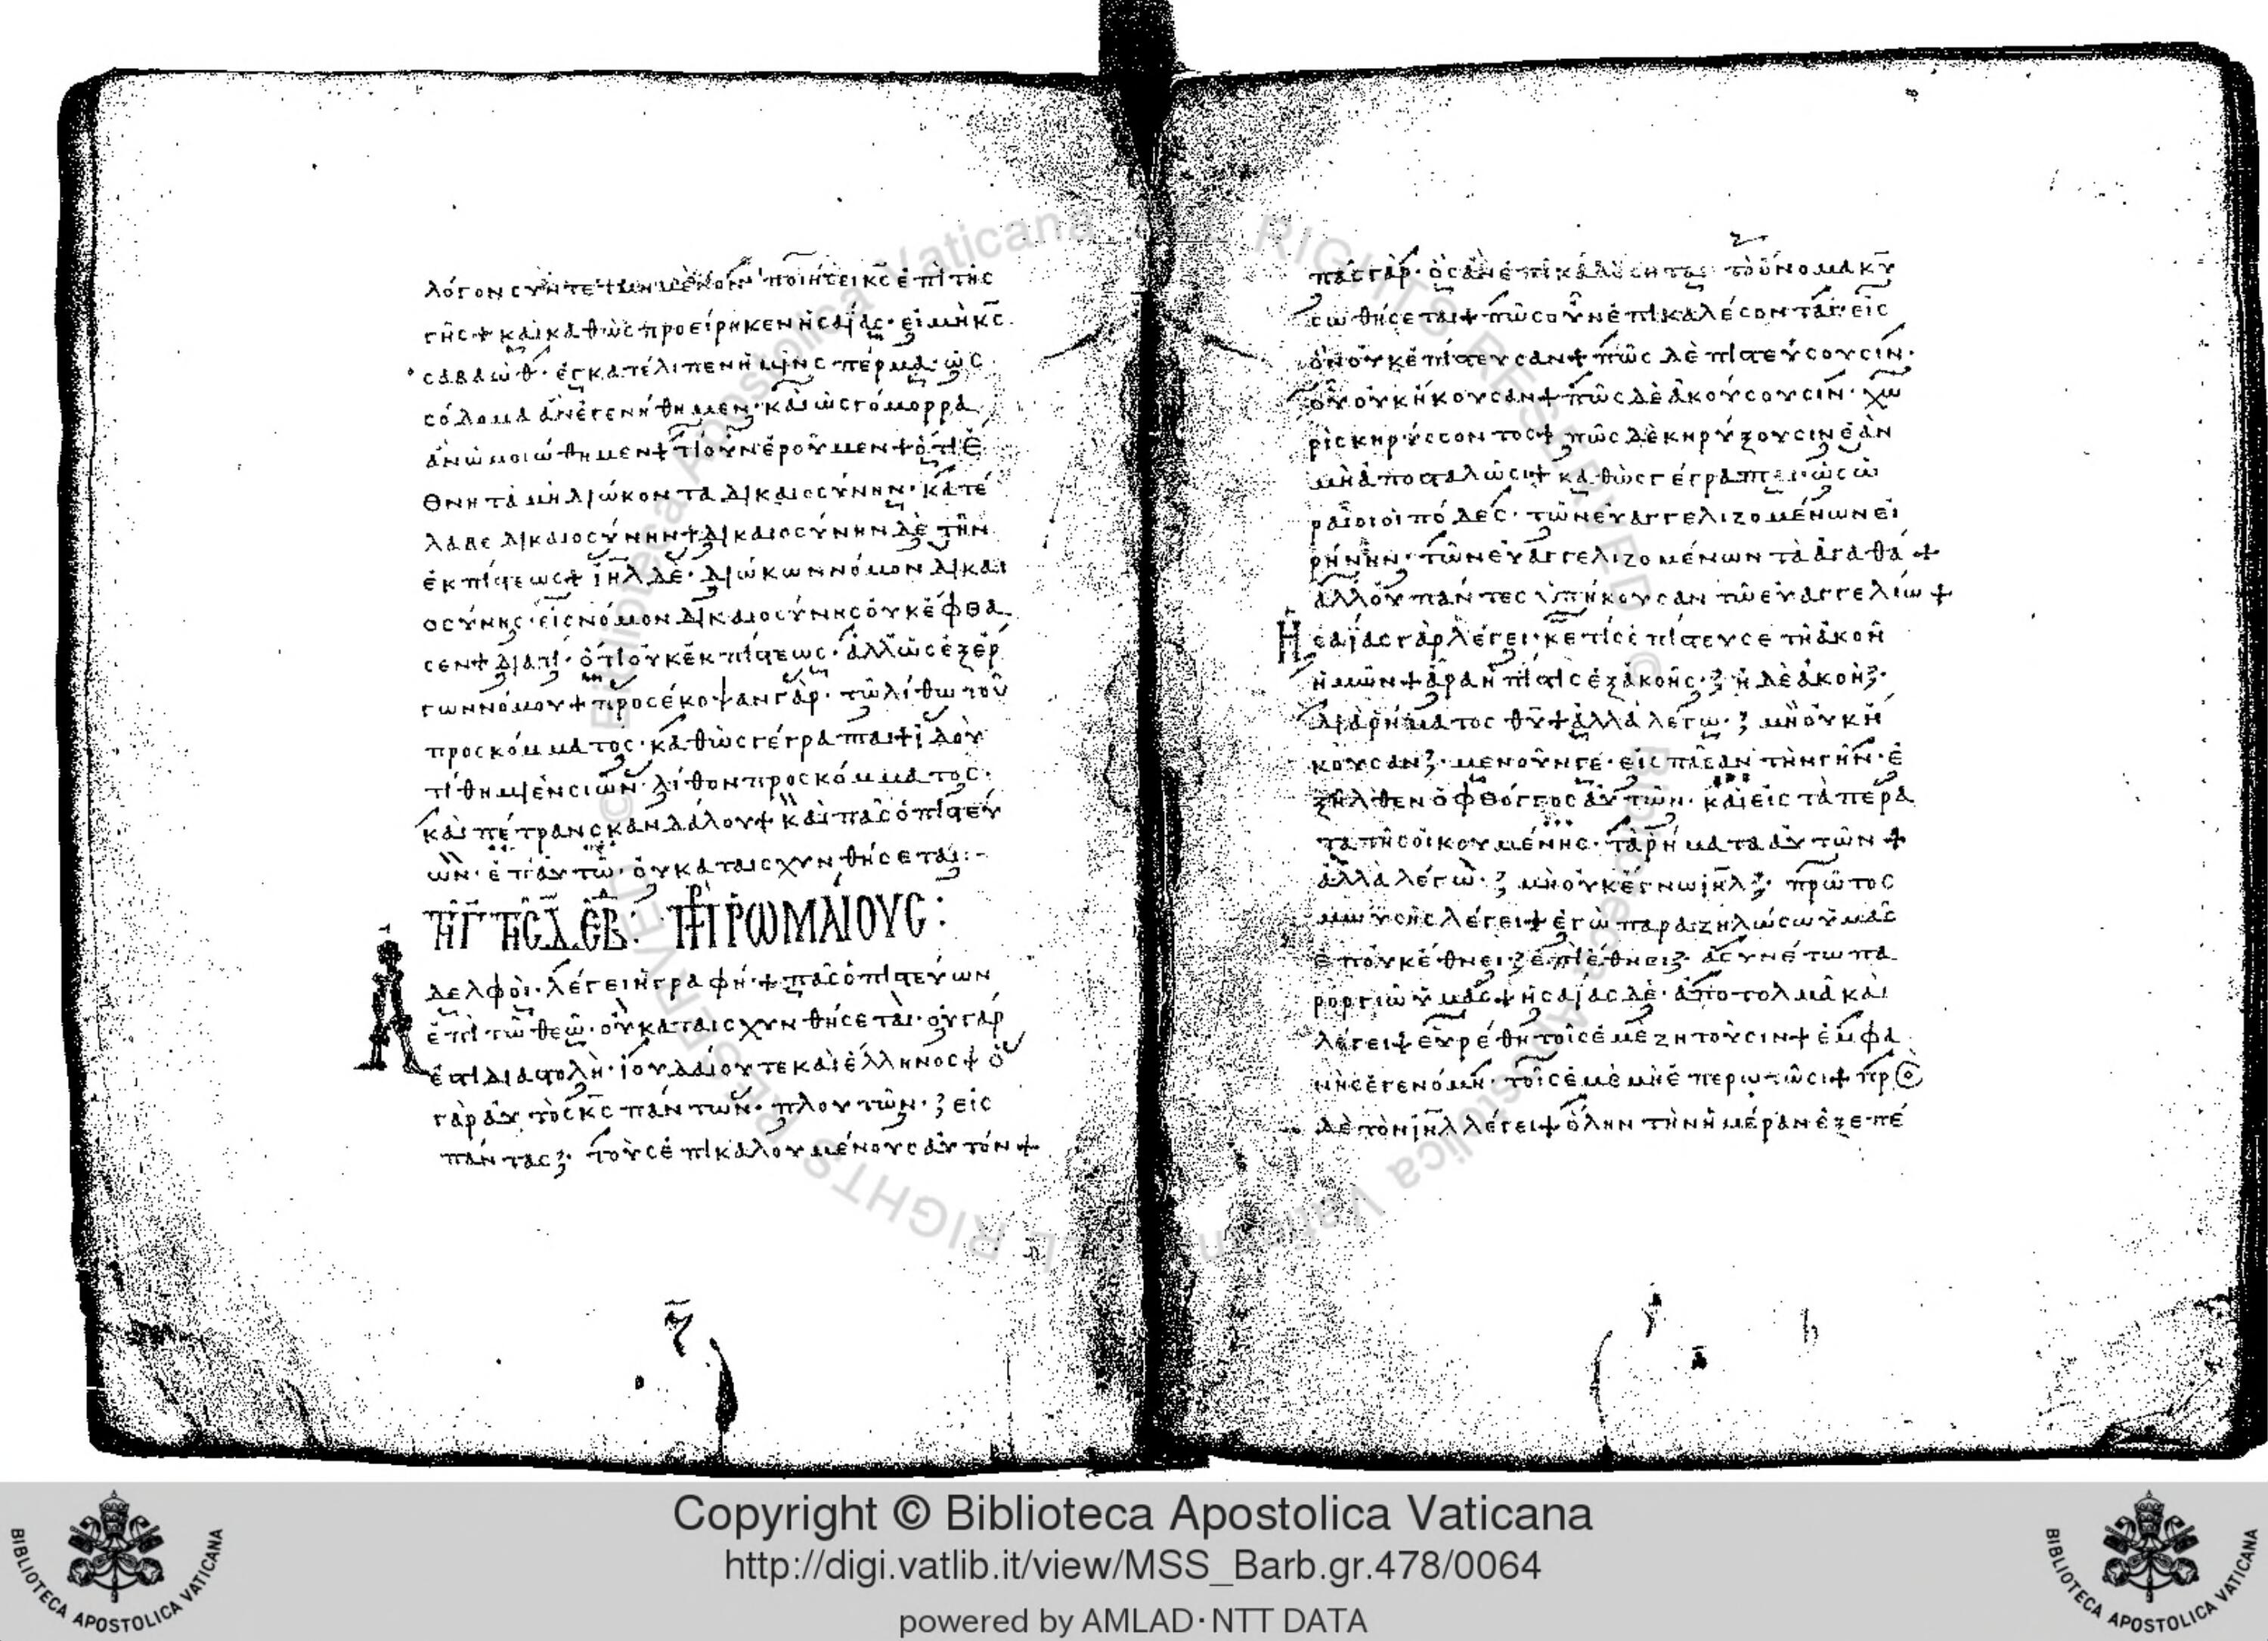 λόγον συντετμημένον ποιήσει κ̅ς̅ ἐπὶ τῆς
γῆς + καὶ καθὼς προείρηκεν ἡσαΐας · εἰ μὴ κ̅ς̅
σαβαὼθ · ἐγκατέλιπεν ἡμῖν σπέρμα · ὡς
σόδομα ἂν ἐγενήθημεν · καὶ ὡς γόμορρα
ἂν ὡμοιώθημεν + τί οὖν ἐροῦμεν + ὅτι ἔ
θνη τὰ μὴ διώκοντα δικαιοσύνην · κατέ
λαβε δικαιοσύνην + δικαιοσύνην δὲ τὴν
ἐκ πίστεως + ι̅η̅λ̅ δὲ · διώκων νόμον δικαι
οσύνης · εἰς νόμον δικαιοσύνης οὐκ ἔφθα
σεν + διατί · ὅτι οὐκ ἐκ πίστεως · ἀλλ ὡς ἐξ ἔρ
γων νόμου + προσέκοψαν γὰρ · τῷ λίθω τοῦ
προσκόμματος · καθὼς γέγραπται + ἰδοὺ
τίθημι ἐν σιὼν λίθον προσκόμματος ·
καὶ πέτραν σκανδάλου + καὶ πᾶς ὁ πιστεύ
ων · ἐπ αὐτῷ · οὐ καταισχυνθήσεται :-
ΤΗ Γ ΤΗΣ Δ ΕΒ : ΠΡ ΡΩΜΑΙΟΥΣ :
Ἀδελφοὶ · λέγει ἡ γραφή + πᾶς ὁ πιστεύων
ἐπὶ τῷ θεῷ · οὐ καταισχυνθήσεται · οὐ γάρ
ἐστι διαστολὴ · ἰουδαίου τε καὶ ἕλληνος + ὁ
γὰρ αὐτὸς κ̅ς̅ πάντων · πλουτῶν · εἰς
πάντας · τοὺς ἐπικαλουμένους αὐτόν +
πᾶς γὰρ · ὃς ἂν ἐπικαλέσηται τὸ ὄνομα κ̅υ̅
σωθήσεται + πῶς οὖν ἐπικαλέσονται · εἰς
ὃν οὐκ ἐπίστευσαν + πῶς δὲ πιστεύσουσιν ·
οὗ οὐκ ἤκουσαν + πῶς δὲ ἀκούσουσιν · χω
ρὶς κηρύσσοντος + πῶς δὲ κηρύξουσιν ἐὰν
μὴ ἀποσταλῶσι + καθὼς γέγραπται · ὡς ὡ
ραῖοι οἱ πόδες · τῶν εὐαγγελιζομένων εἰ
ρήνην · τῶν εὐαγγελιζομένων τὰ ἀγαθά +
ἀλλ οὐ πάντες ὑπήκουσαν τῷ εὐαγγελίω +
Ἡσαΐας γὰρ λέγει · κ̅ε̅ τίς ἐπίστευσε τῇ ἀκοῇ
ἡμῶν + ἄρα ἡ πίστις ἐξ ἀκοῆς · ἡ δὲ ἀκοὴ ·
διὰ ῥήματος θ̅υ̅ + ἀλλὰ λέγω · μὴ οὐκ ἤ
κουσαν · μενοῦνγε · εἰς πᾶσαν τὴν γῆν · ἐ
ξῆλθεν ὁ φθόγγος αὐτῶν · καὶ εἰς τὰ πέρα
τα τῆς οἰκουμένης · τὰ ῥήματα αὐτῶν +
ἀλλὰ λέγω · μὴ οὐκ ἔγνω ι̅η̅λ̅ · πρῶτος
μωϋσῆς λέγει + ἐγὼ παραζηλώσω ὑμᾶς
ἐπ οὐκ ἔθνει · ἐπὶ ἔθνει ἀσυνέτω πα
ροργιῶ ὑμᾶς + ἡσαΐας δὲ · ἀποτολμᾶ καὶ
λέγει + εὑρέθην τοῖς ἐμὲ ζητοῦσιν + ἐμφα
νὴς ἐγενόμην · τοῖς ἐμὲ μὴ ἐπερωτῶσι + πρὸς
δὲ τὸν ι̅η̅λ̅ λέγει + ὅλην τὴν ἡμέραν ἐξεπέ
Copyright © Biblioteca Apostolica Vaticana
http://digi.vatlib.it/view/MSS_Barb.gr.478/0064
powered by AMLAD·NTT DATA
BIBLIOTECA APOSTOLICA VATICANA
BIBLIOTECA APOSTOLICA VATICANA